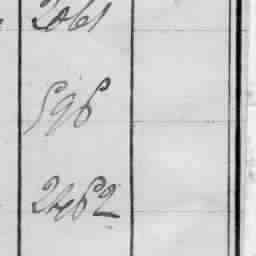 2061
596
2462